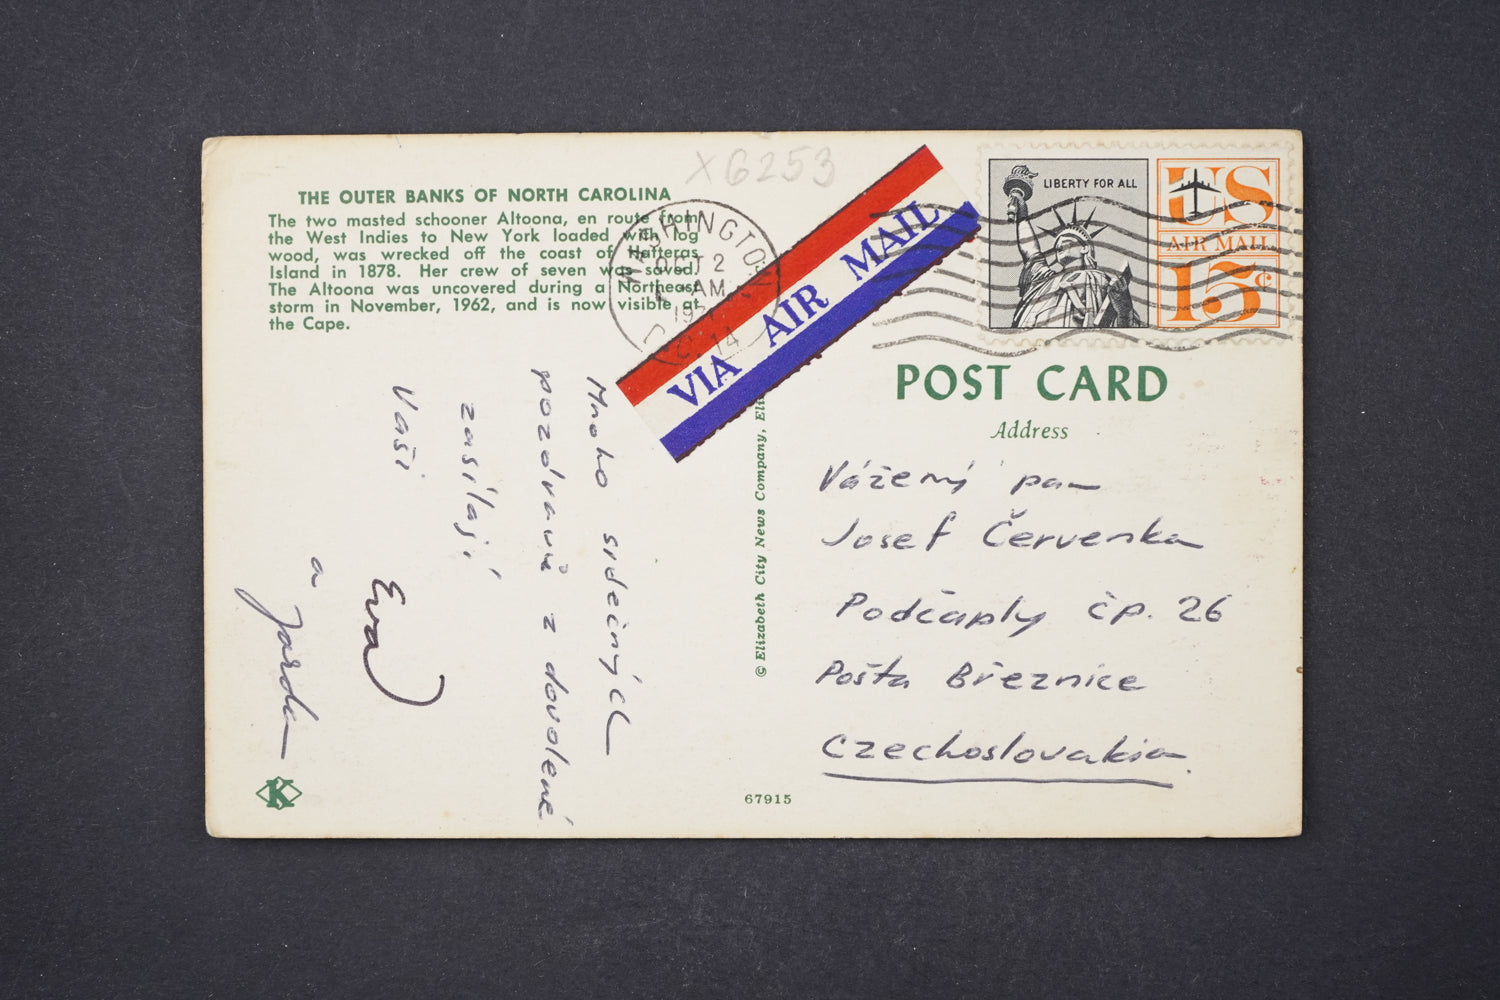 X6253
THE OUTER BANKS OF NORTH CAROLINA
The two masted schooner Altoona, en route from
the West Indies to New York loaded with log
wood, was wrecked off the coast of Hatteras
Island in 1878. Her crew of seven was saved.
The Altoona was uncovered during a Northeast
storm in November, 1962, and is now visible at
the Cape.
WASHINGTON
OCT 2
AM
14
VIA AIR MAIL
LIBERTY FOR ALL
US
AIR MAIL
15¢
POST CARD
Address
Mnoho srdečných
pozdravů z dovolené
zasílají
Vaši
Eva
a Jarda
© Elizabeth City News Company,
Vážený pan
Josef Červenka
Podčaply čp. 26
Pošta Březnice
Czechoslovakia
K
67915